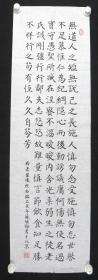 無道人之短無說己之長施人慎勿念受施慎勿忘世譽
不足慕唯仁為紀綱隱心而後動謗議庸何傷無使名過
實守愚聖所臧在涅貴不淄曖曖內含光柔弱生之徒老
氏誡剛強行行鄙夫志悠悠故難量慎言節飲食知足勝
不祥行之苟有恆久久自芬芳